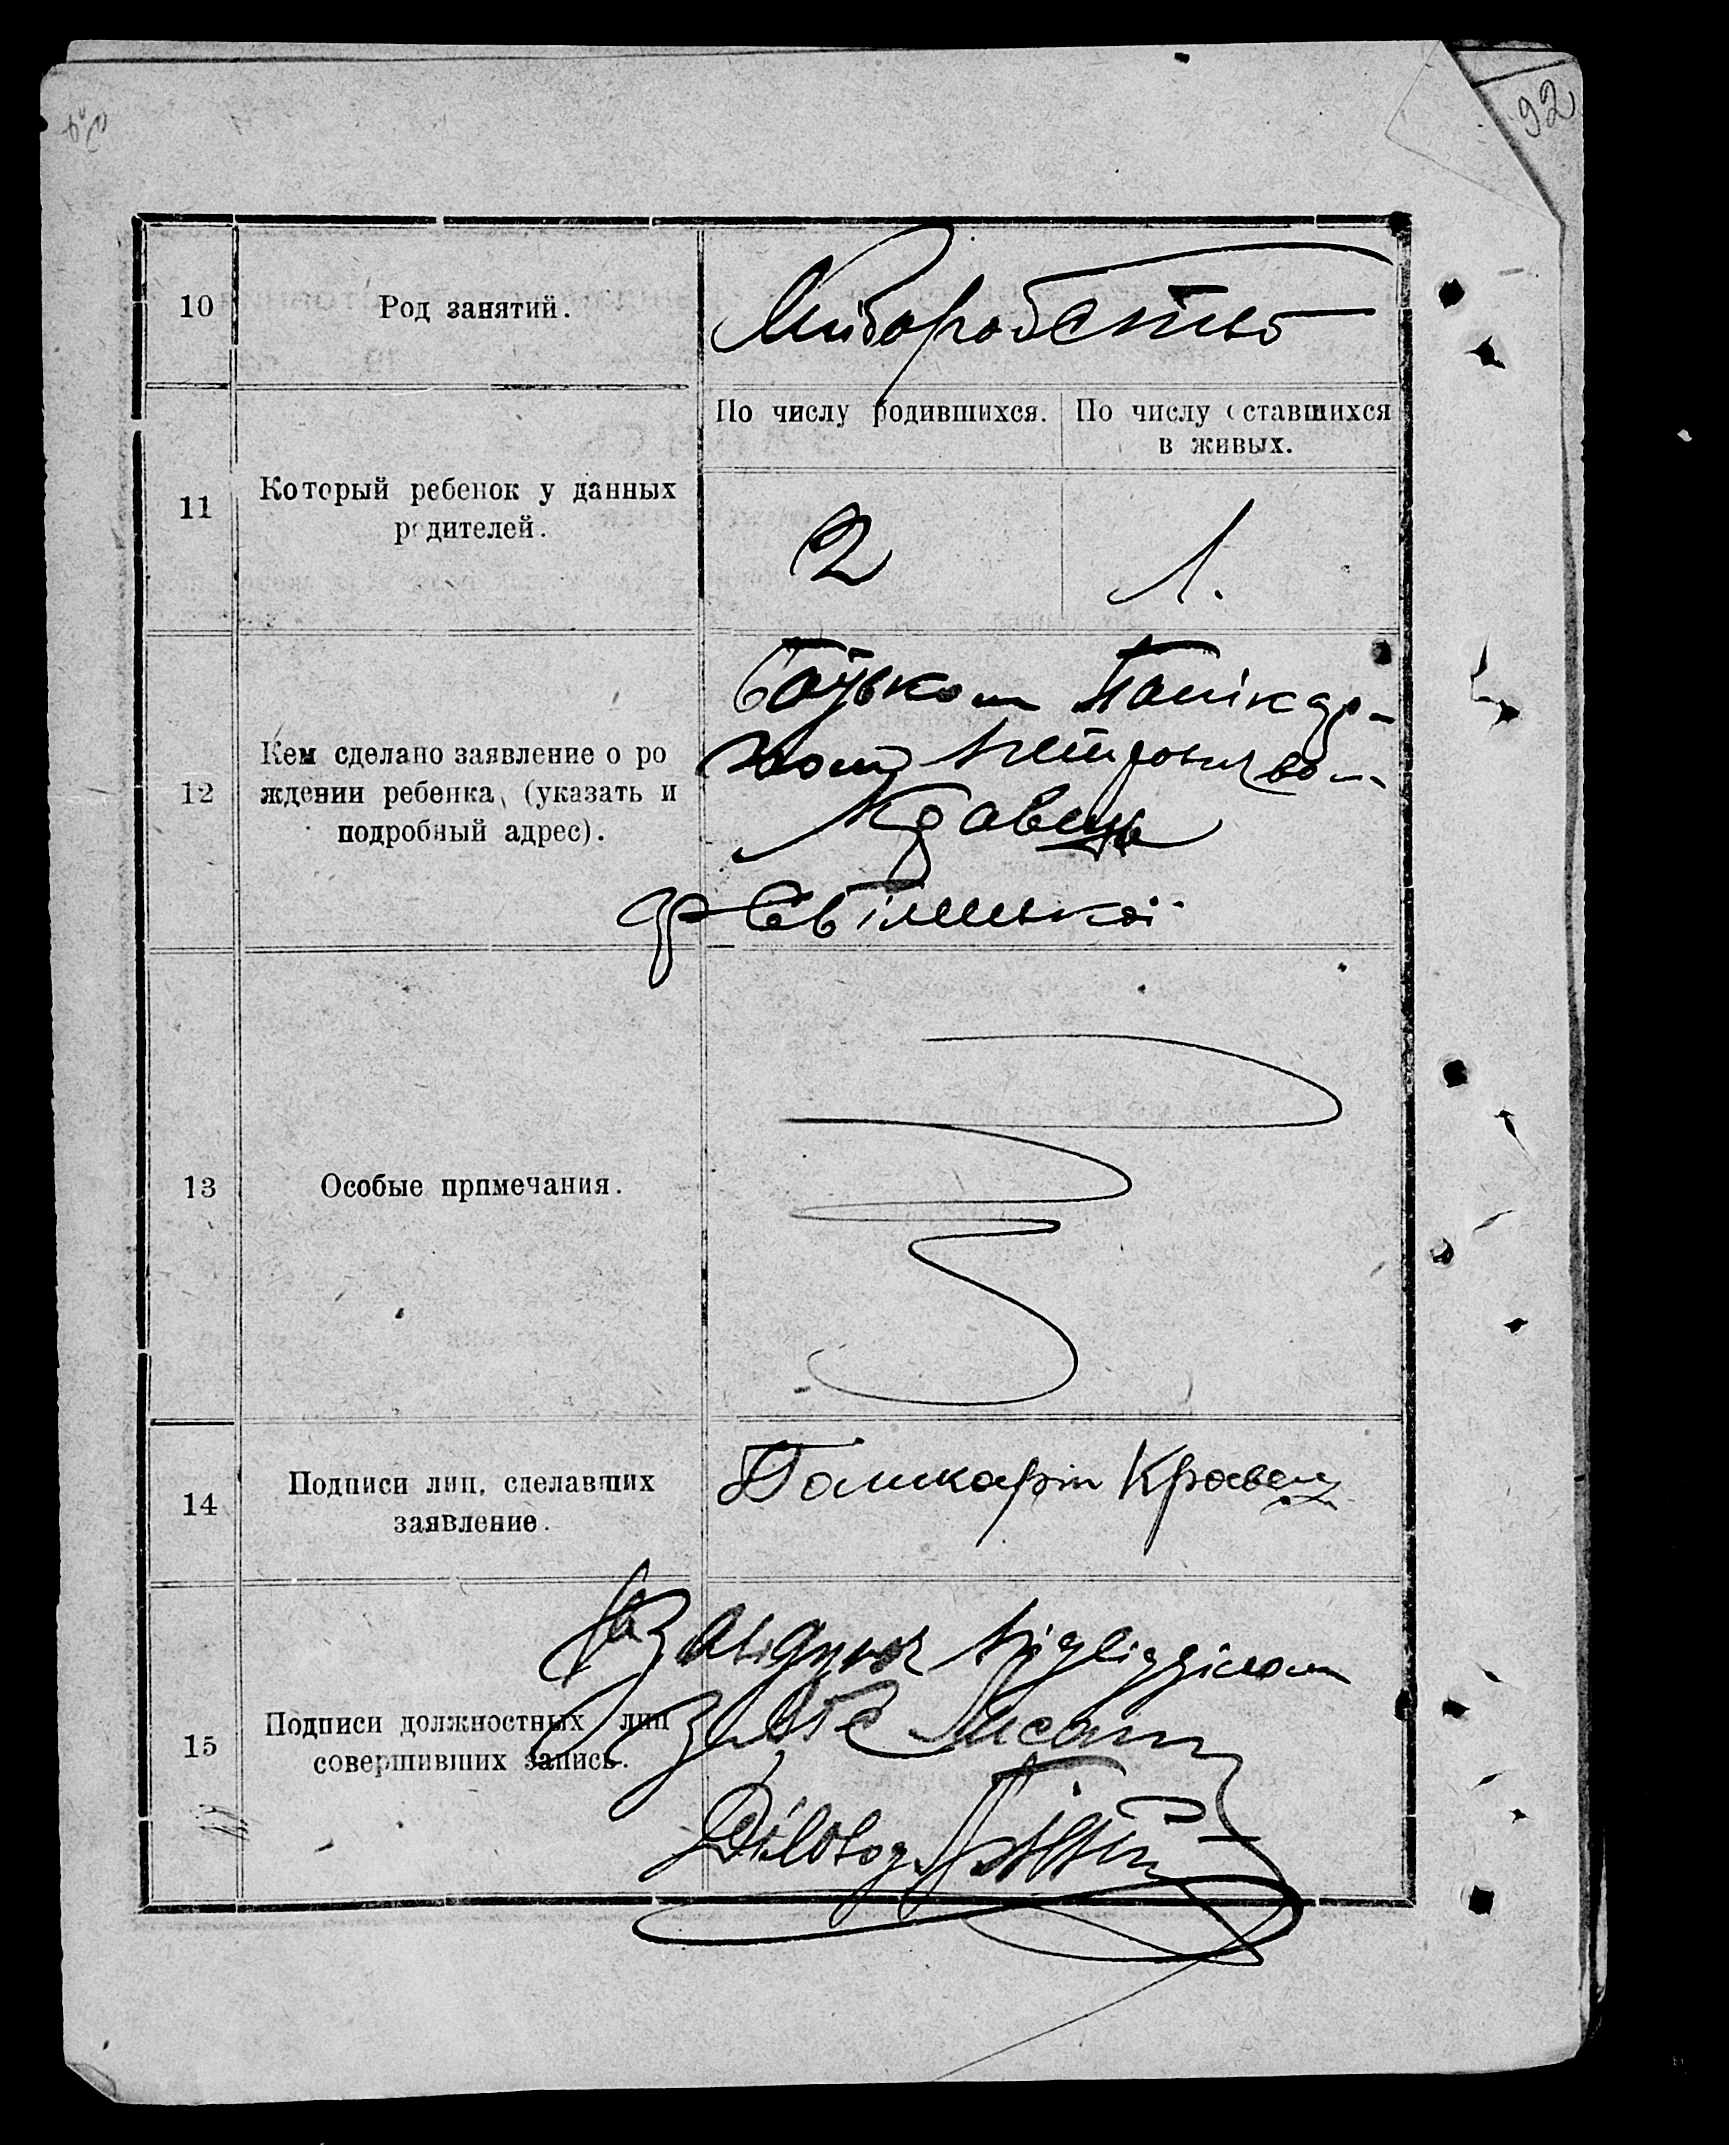 92
10 Род занятий. Хліборобство
По числу родившихся. По числу оставшихся
в живых.
11 Который ребенок у данных
родителей.
2 1.
Батьком Паликар-
пом Петровичом
Кравець
12 Кем сделано заявление о ро
ждении ребенка, (указать и
подробный адрес).
13 Особые примечания.
14 Подписи лиц, сделавших
заявление.
Паликарп Кравец
Завідуюч
15 Подписи должностных лиц
совершивших запись.
Діловод